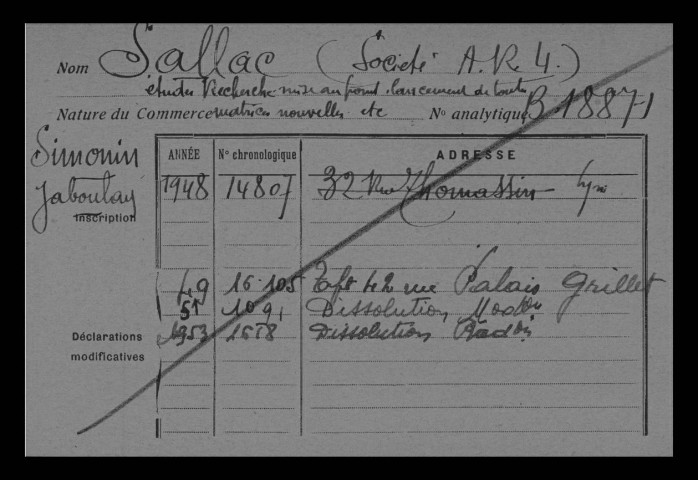 Nom Sallac (Société A.R.4.)
études Recherche mise au point lancement de toutes
Nature du Commerce matières nouvelles etc N° analytique B 18871
Simonin
Jaboulay
Inscription
ANNÉE N° chronologique ADRESSE
1948 14807 32 Rue Thomassin Lyon
49 16.105 Tsft 42 rue Palais Grillet
51 1091 Dissolution Modon
1953 1658 Dissolution Radon
Déclarations
modificatives